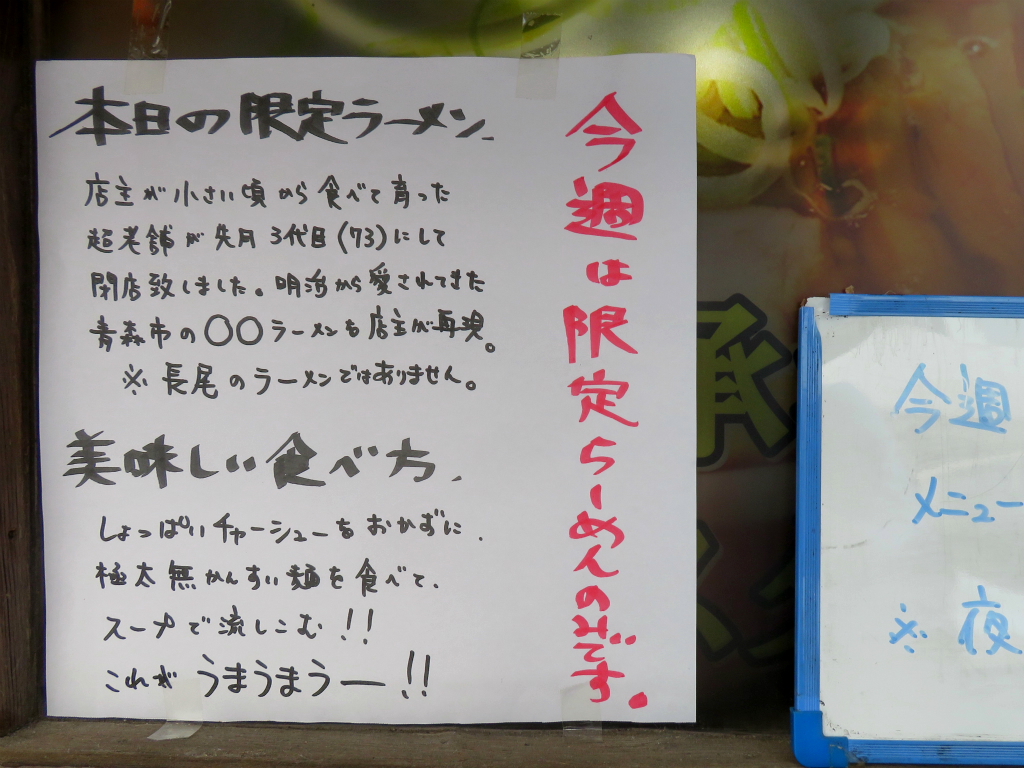 今週は限定らーめんのみです。
本日の限定ラーメン、
店主が小さい頃から食べて育った
超老舗が先月3代目(73)にして
閉店致しました。明治から愛されてきた
青森市の〇〇ラーメンを店主が再現。
※長尾のラーメンではありません。
美味しい食べ方、
しょっぱいチャーシューをおかずに、
極太無かんすい麺を食べて、
スープで流しこむ!!
これがうまうまうー!!
今週
メニュー
※夜